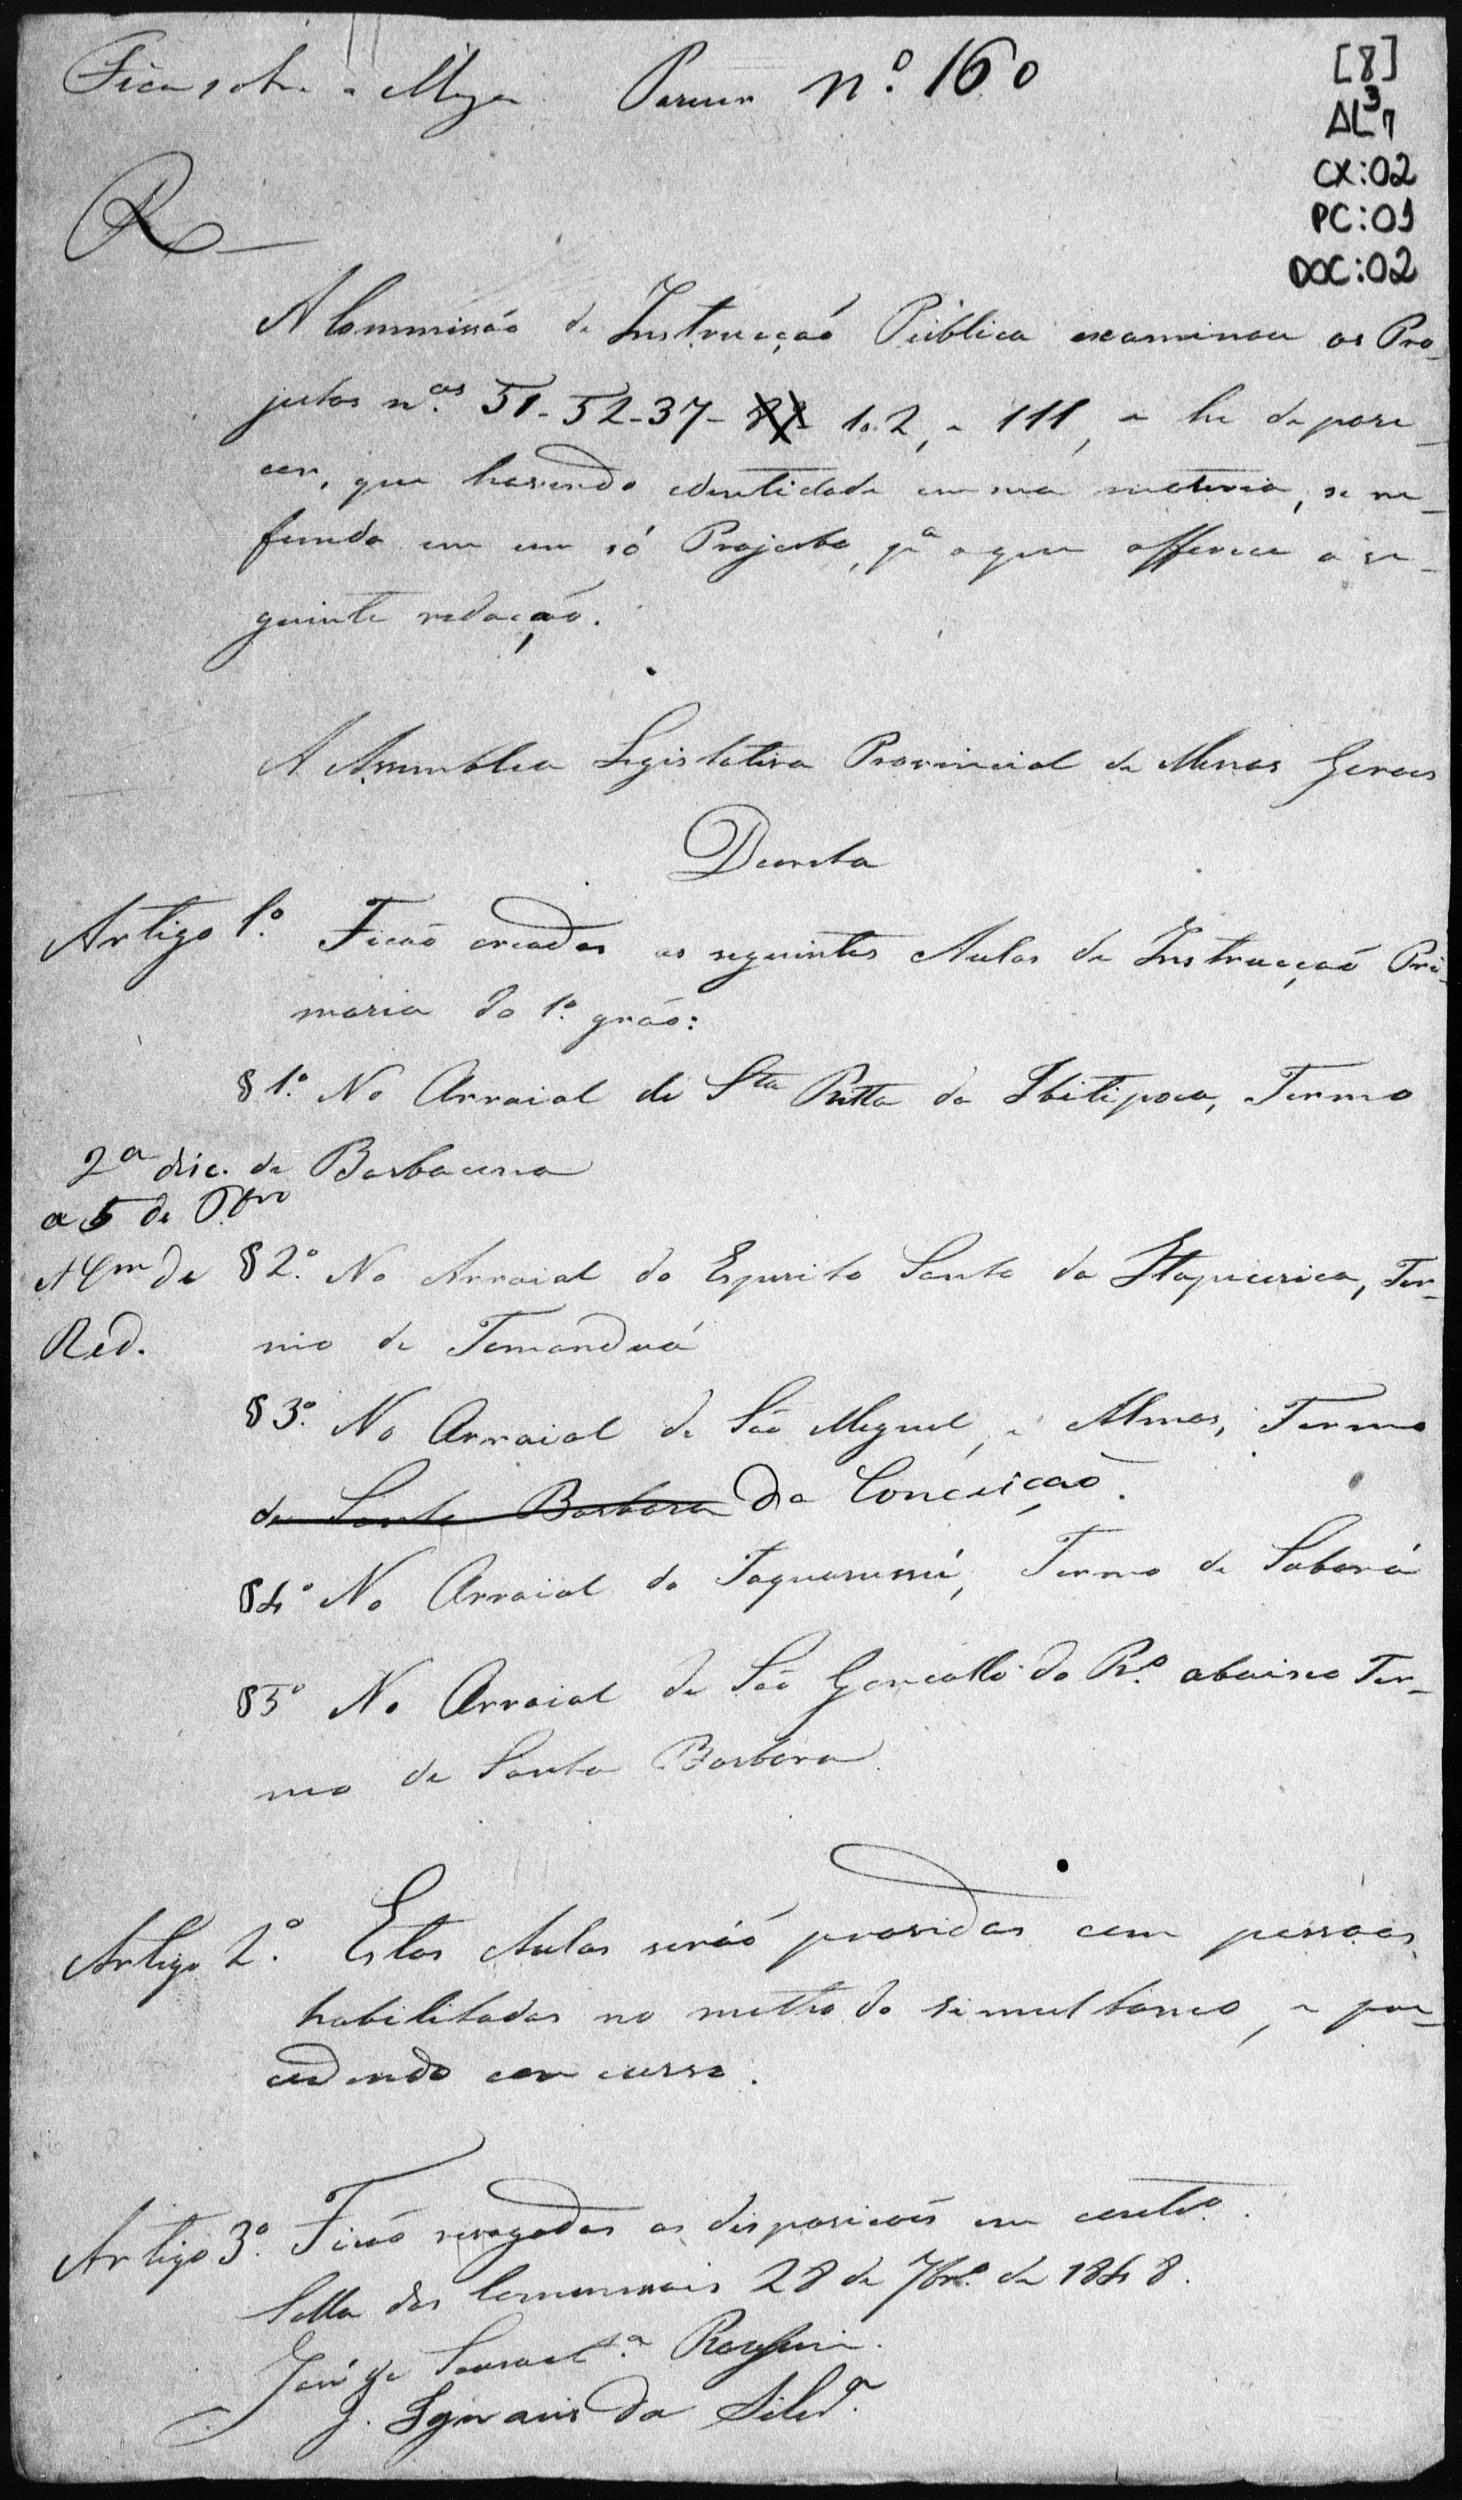 Fica sobre a Meza Parecer nº. 160
[8]
AL³7
CX:02
PC:01
DOC:02
R
A Commissáo de Instrucçaó Publica examinou os Pro_
jectos n.os 51-52-37- 102, e 111, e he de pare_
cer, que havendo identidade em sua materia, se re_
funda em um só Projecto, pª o que offerece a se_
guinte redacçáo.
A Assemblea Legislativa Provincial de Minas Geraes
Decreta
Artigo 1º. Ficaó creadas as seguintes Aulas de Instrucçaó Pri_
maria do 1º. gráo:
§1º. No Arraial de Sta Ritta da Ibitipoca, Termo
2ª disc. de Barbacena
a 5 de 8bro
A Cm de §2º. No Arraial do Espirito Santo da Itapicirica, Ter_
Red. mo de Tamanduá
§3º. No Arraial de São Miguel, e Almas, Termo
de Santa Barbara da Conceiçaõ.
§4º No Arraial do Taquarussú, Termo de Sabará
§5º No Arraial de São Goncallo do Rº. abaixo Ter_
mo de Santa Barbara.
Artigo 2º. Estas Aulas seráó providas com pessoas
habilitadas no methodo simultaneo, e pre_
cedendo concurso.
Artigo 3º. Ficáó revogadas as disposicoẽs em contrº.
Salla das Commissoẽs 28 de 7brº. de 1848.
José de Souza
J. Ignacio da Silvª.